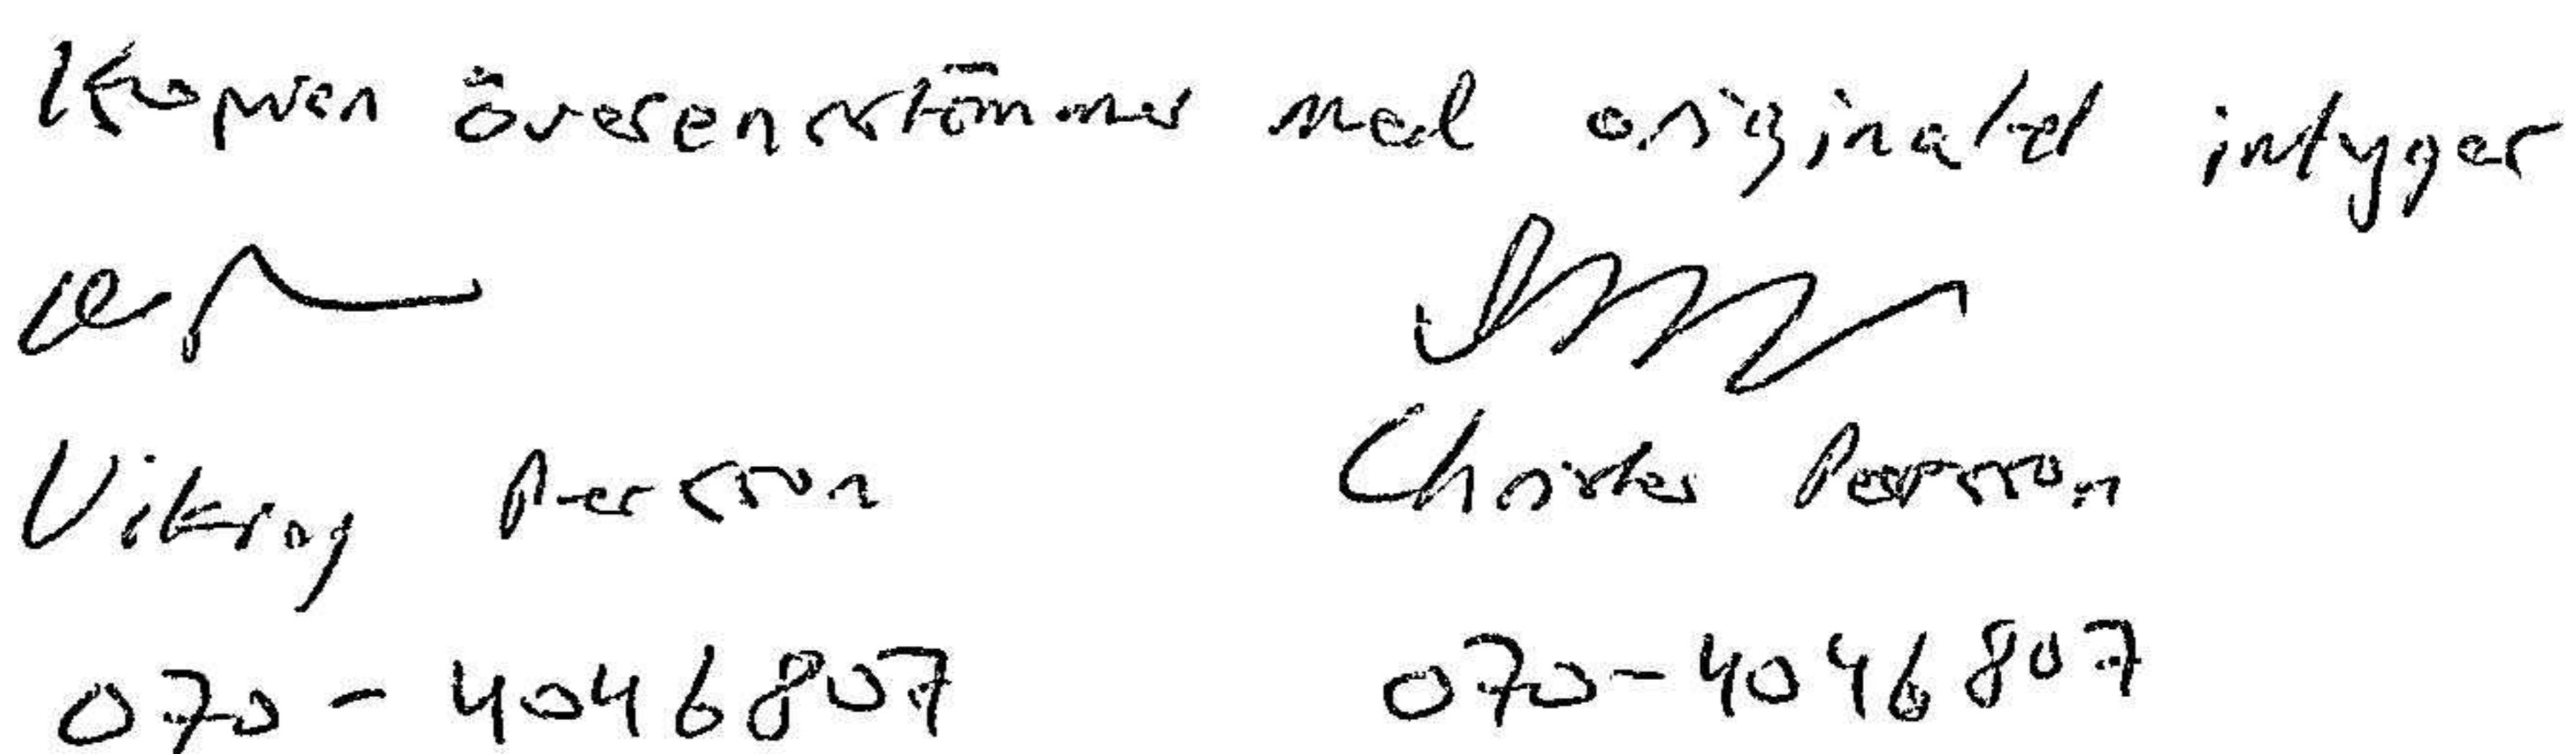 Kopien överensstämmer med originalet intyger
Persson Christer Persson
070-4046807 070-4046807